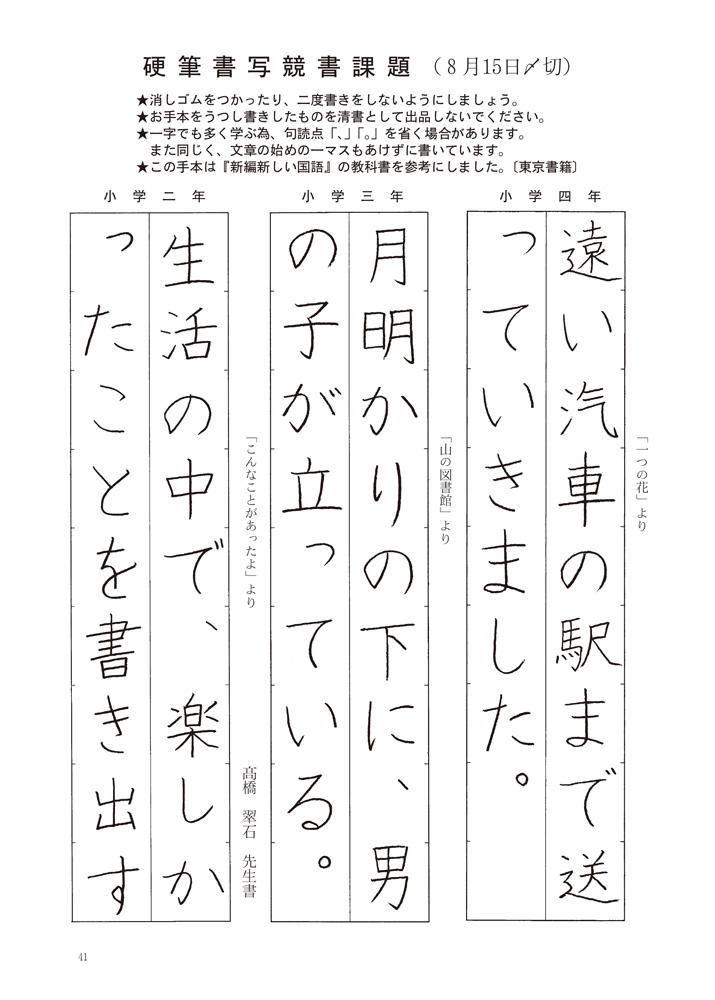 硬筆書写競書課題 (8月15日〆切)
★消しゴムをつかったり、二度書きをしないようにしましょう。
★お手本をうつし書きしたものを清書として出品しないでください。
★一字でも多く学ぶ為、句読点「、」「。」を省く場合があります。
また同じく、文章の始めの一マスもあけずに書いています。
★この手本は『新編新しい国語』の教科書を参考にしました。〔東京書籍〕
小学四年
「一つの花」より
遠い汽車の駅まで送
っていきました。
小学三年
「山の図書館」より
月明かりの下に、男
の子が立っている。
小学二年
「こんなことがあったよ」より
髙橋 翠石 先生書
生活の中で、楽しか
ったことを書き出す
41